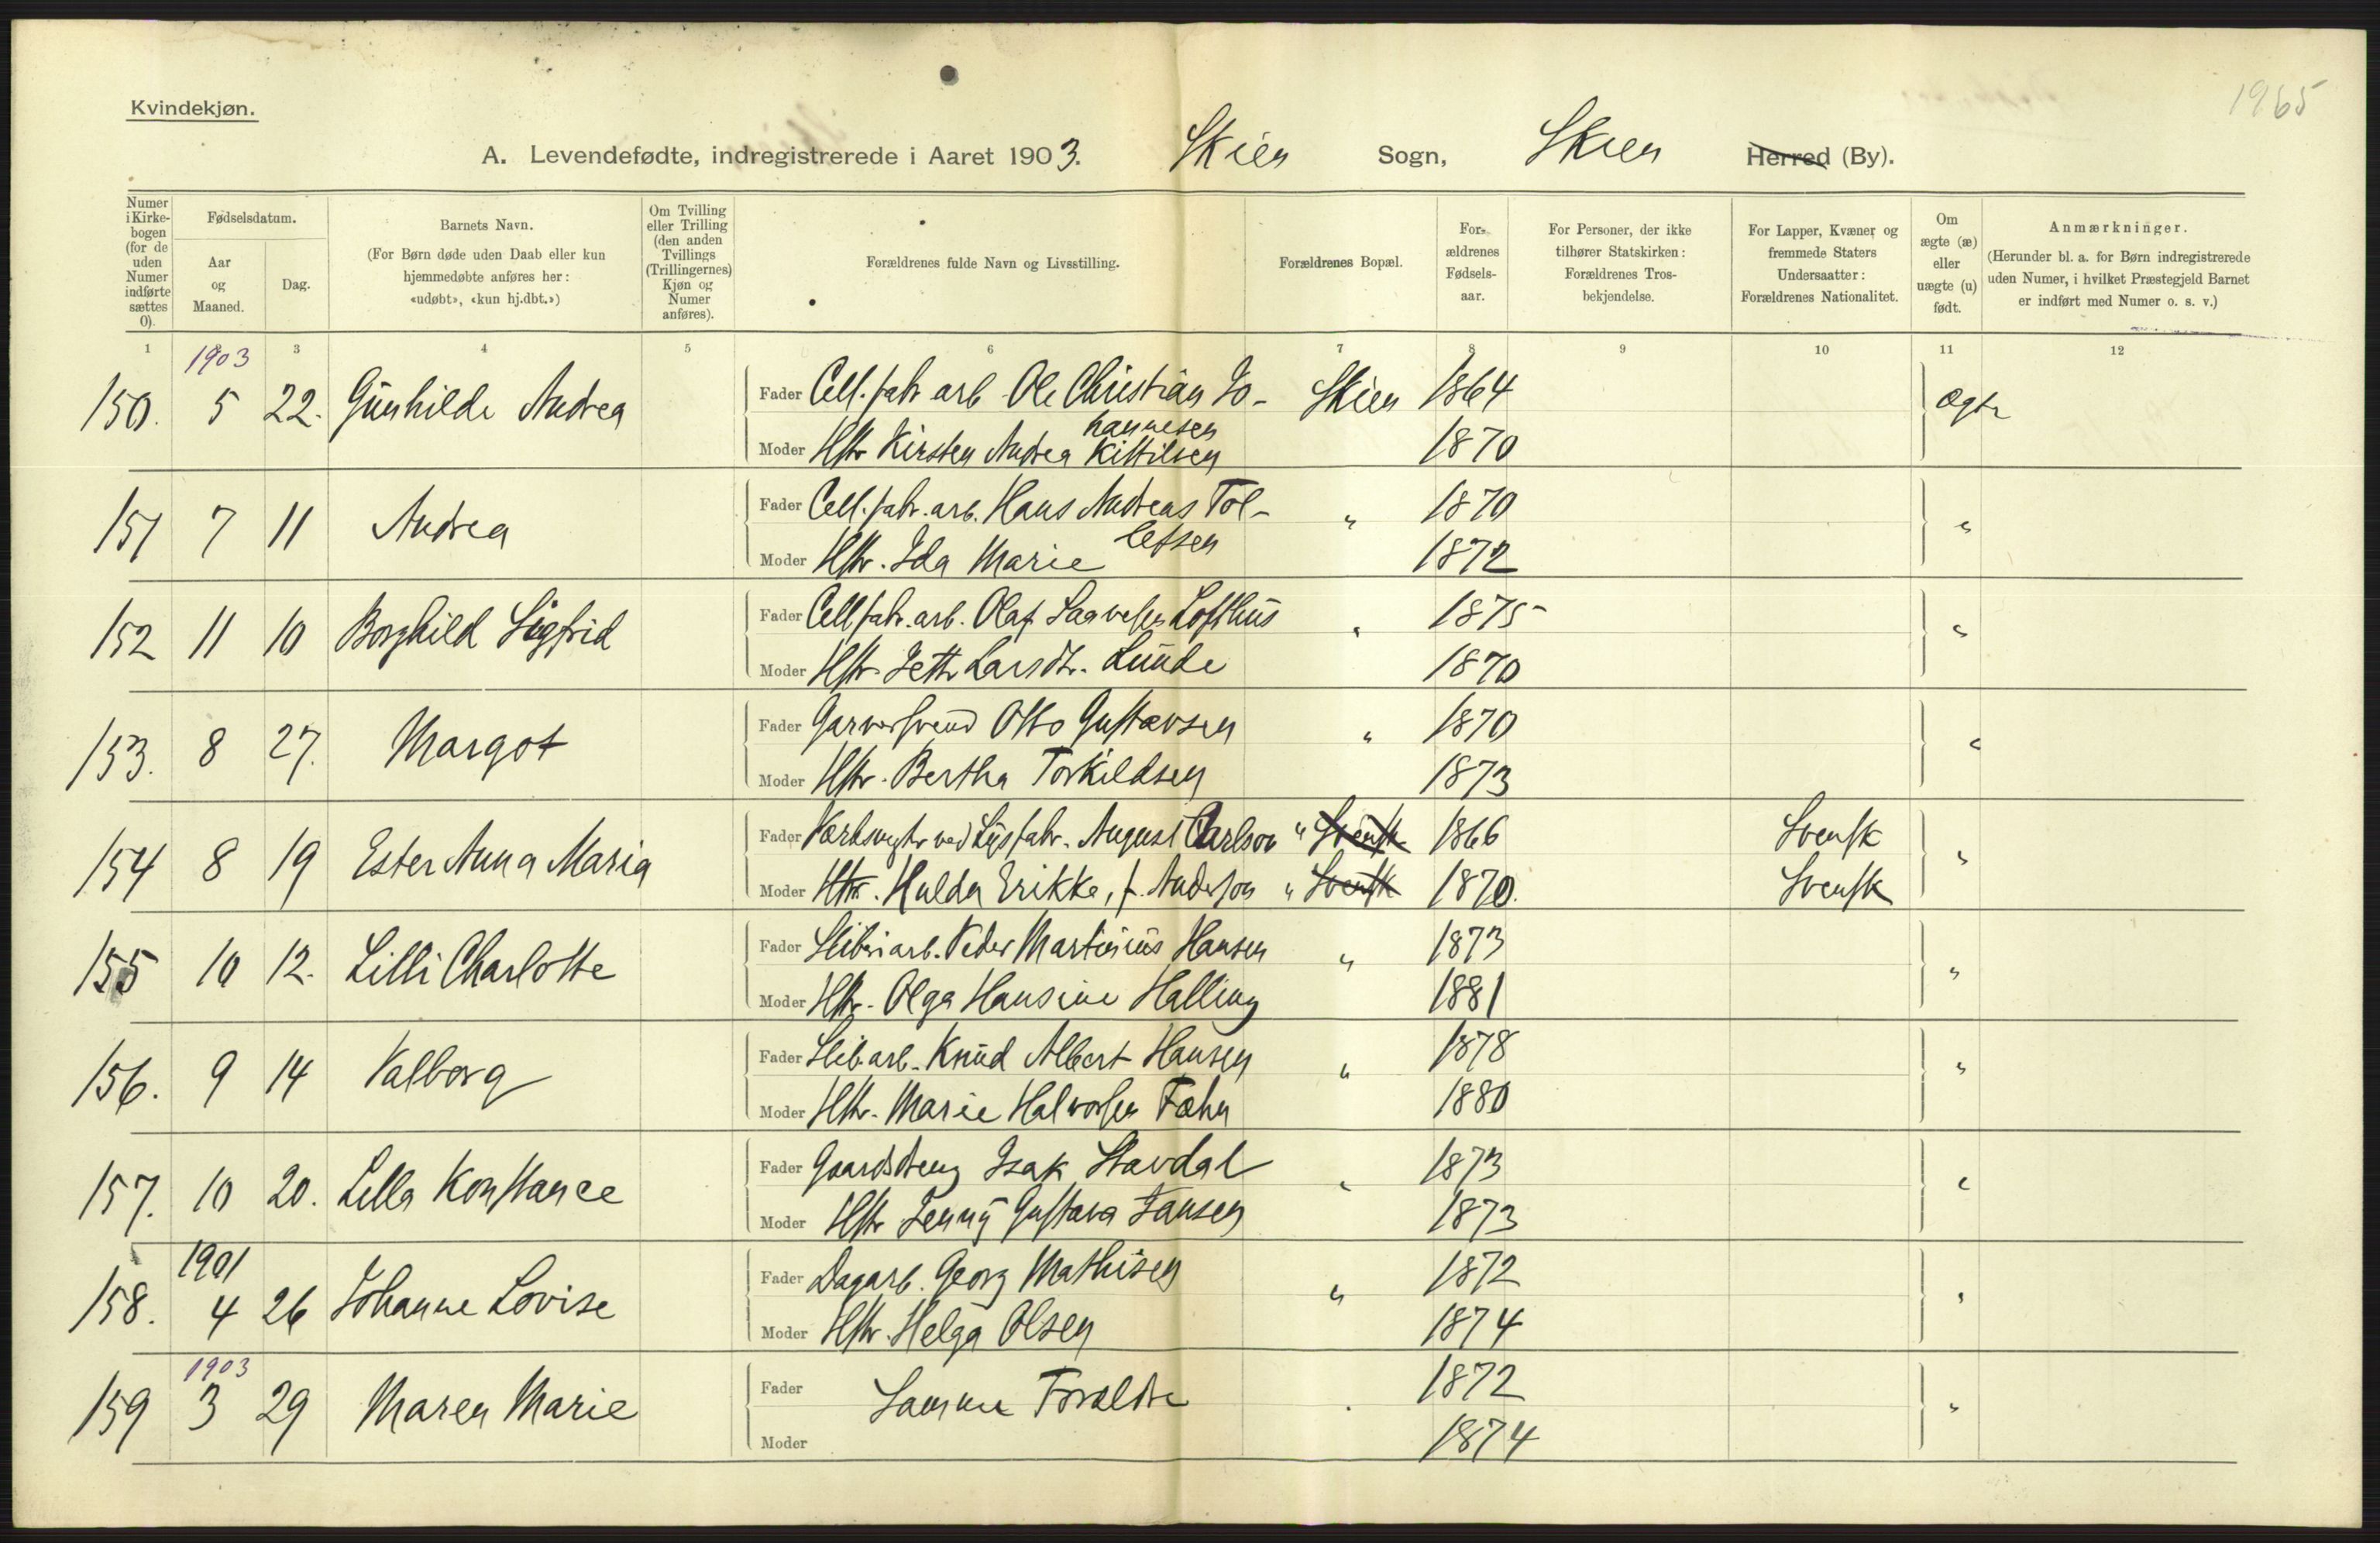 Kvindekjøn.
1965
A. Levendefødte, indregistrerede i Aaret 1903. Skien Sogn, Skien Herred (By).
Numer i Kirke-bogen (for de uden Numer indførte sættes 0).
Fødselsdatum.
Aar og Maaned.
Dag.
Barnets Navn.
(For Børn døde uden Daab eller kun hjemmedøbte anføres her: «udøbt», «kun hj.dbt.»)
Om Tvilling eller Trilling (den anden Tvillings (Trillingernes) Kjøn og Numer anføres).
Forældrenes fulde Navn og Livsstilling.
Forældrenes Bopæl.
For-ældrenes Fødsels-aar.
For Personer, der ikke tilhører Statskirken: Forældrenes Tros-bekjendelse.
For Lapper, Kvæner og fremmede Staters Undersaatter: Forældrenes Nationalitet.
Om ægte (æ) eller uægte (u) født.
Anmærkninger.
(Herunder bl. a. for Børn indregistrerede uden Numer, i hvilket Præstegjeld Barnet er indført med Numer o. s. v.)
1 3 4 5 6 7 8 9 10 11 12
1903
150. 5 22. Gunhilde Andrea Fader Cell. fabr arb Ole Christian Jo- Skien 1864 ægte
hannesen
Moder Hstr Kirsten Andrea Kittilsen 1870
151 7 11 Andrea Fader Cell. fabr. arb. Hans Andreas Tol- " 1870 "
lefsen
Moder Hstr. Ida Marie 1872
152 11 10 Borghild Sigfrid Fader Cell fabr. arb. Olaf Saavesen Lofthus " 1875 "
Moder Hstr. Jette Larsdtr. Lunde 1870
153. 8 27. Margot Fader Garversvend Otto Gustavsen " 1870 "
Moder Hstr. Bertha Torkildsen 1873
154 8 19 Ester Anna Maria Fader ved fabr. August Carlson " Svensk 1866 Svensk "
Moder Hstr. Hulda Erikke, f. Anderson " Svensk 1870. Svensk
155 10 12. Lilli Charlotte Fader Sliberiarb. Peder Martinius Hansen " 1873 "
Moder Hstr. Olga Hansine Halling 1881
156. 9 14 Valborg Fader Slib. arb. Knud Albert Hansen " 1878 "
Moder Hstr. Marie Halvorsen Fæhn 1880
157. 10 20. Lilla Konstance Fader Gaardsdreng Isak Stavdal " 1873 "
Moder Hstr Jenny Gustava Jansen 1873
1901
158. 4 26 Johanne Lovise Fader Dagarb. Georg Mathisen " 1872 "
Moder Hstr. Helga Olsen 1874
1903
159 3 29 Maren Marie Fader Samme Forældre " 1872 "
Moder 1874